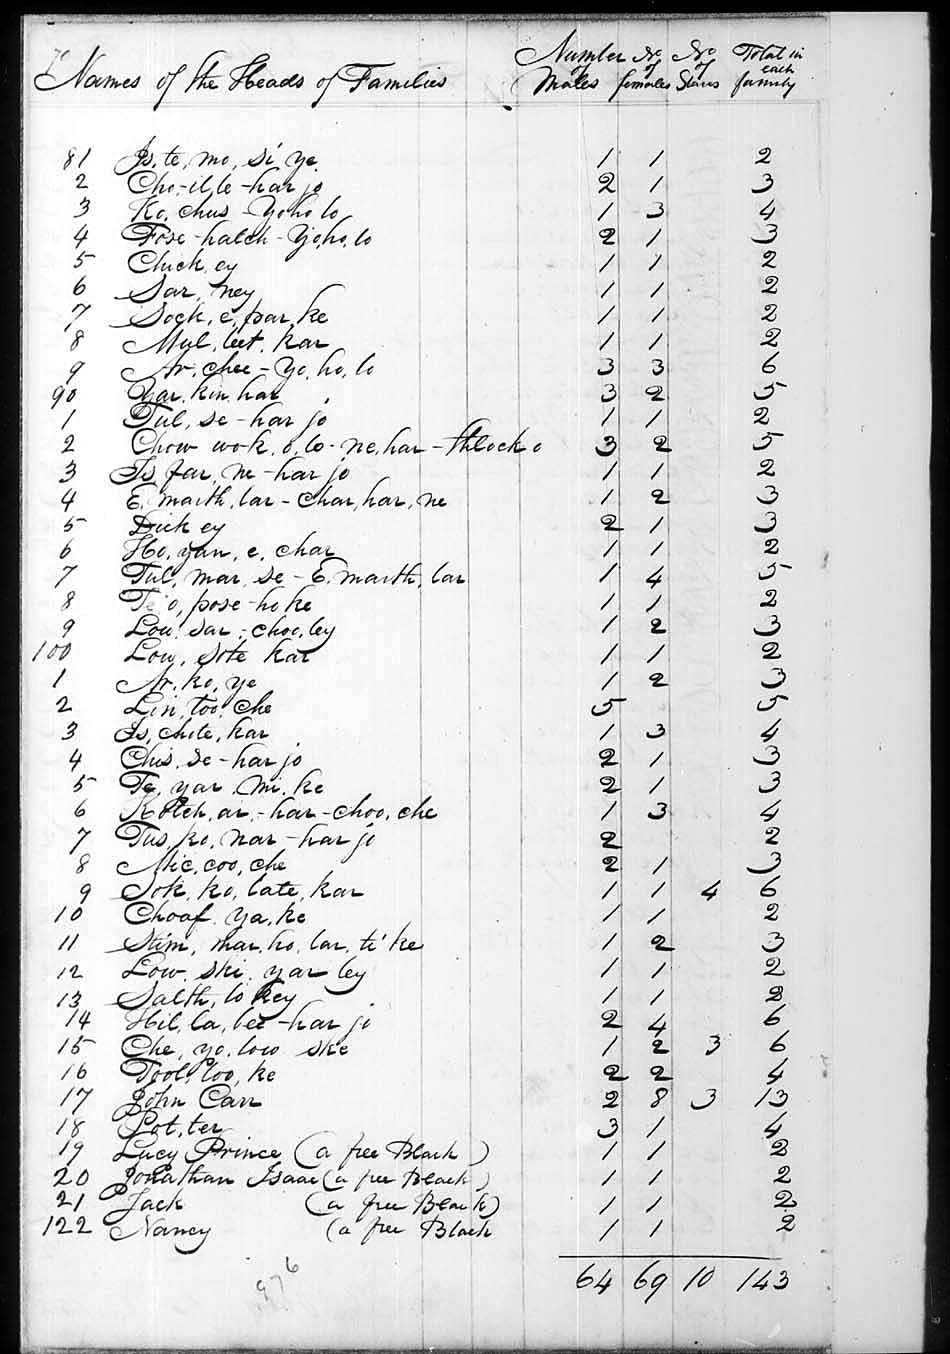 Names of the Heads of Families Number of Males No of females No of Slaves Total in each family
81 Is, te, mo, si ye 1 1 2
2 Cho-il, le-har jo 2 1 3
3 Ko, chus Yoho lo 1 3 4
4 Fose-hatch-Yo, ho, lo 2 1 3
5 Chick, ey 1 1 2
6 Sar, ney 1 1 2
7 Sock, e, par, ke 1 1 2
8 Mul, let, kar 1 1 2
9 Ar, chee-Yo, ho, lo 3 3 6
90 Yar, kin, har 3 2 5
1 Tul, se-har jo 1 1 2
2 Chow wok, o, lo-ne, har-thlock o 3 2 5
3 Is far, ne-har jo 1 1 2
4 E. marth, lar-Char, har, ne 1 2 3
5 Dick ey 2 1 3
6 Ho, yan, e, char 1 1 2
7 Tul, mar, se-E. marth, lar 1 4 5
8 o, pose-ho, ke 1 1 2
9 Low, sar-choo, ley 1 2 3
100 Low, sote kar 1 1 2
1 Ar, ko, ye 1 2 3
2 Lin, too, che 5 5
3 Is, chite, kar 1 3 4
4 Chis, se-har jo 2 1 3
5 Te, yar, mi, ke 2 1 3
6 Kotch, ar,-har-choo, che 1 3 4
7 Tus, ko, nar-har jo 2 2
8 Mic, coo, che 2 1 3
9 Sok, ko, late, kar 1 1 4 6
10 Choaf, ya, ke 1 1 2
11 Stim, mar, ho, lar, ti' ke 1 2 3
12 Low, ski, yar ley 1 1 2
13 Salth, lo key 1 1 2
14 Hil, la, bee-har jo 2 4 6
15 Che, yo, low ske 1 2 3 6
16 Tool, loo, ke 2 2 4
17 John Carr 2 8 3 13
18 Lot, ter 3 1 4
19 Lucy Prince (a free Black) 1 1 2
20 Jonathan Isaac (a free Black) 1 1 2
21 Jack (a free Black) 1 1 2
122 Nancy (a free Black 1 1 2
64 69 10 143
976